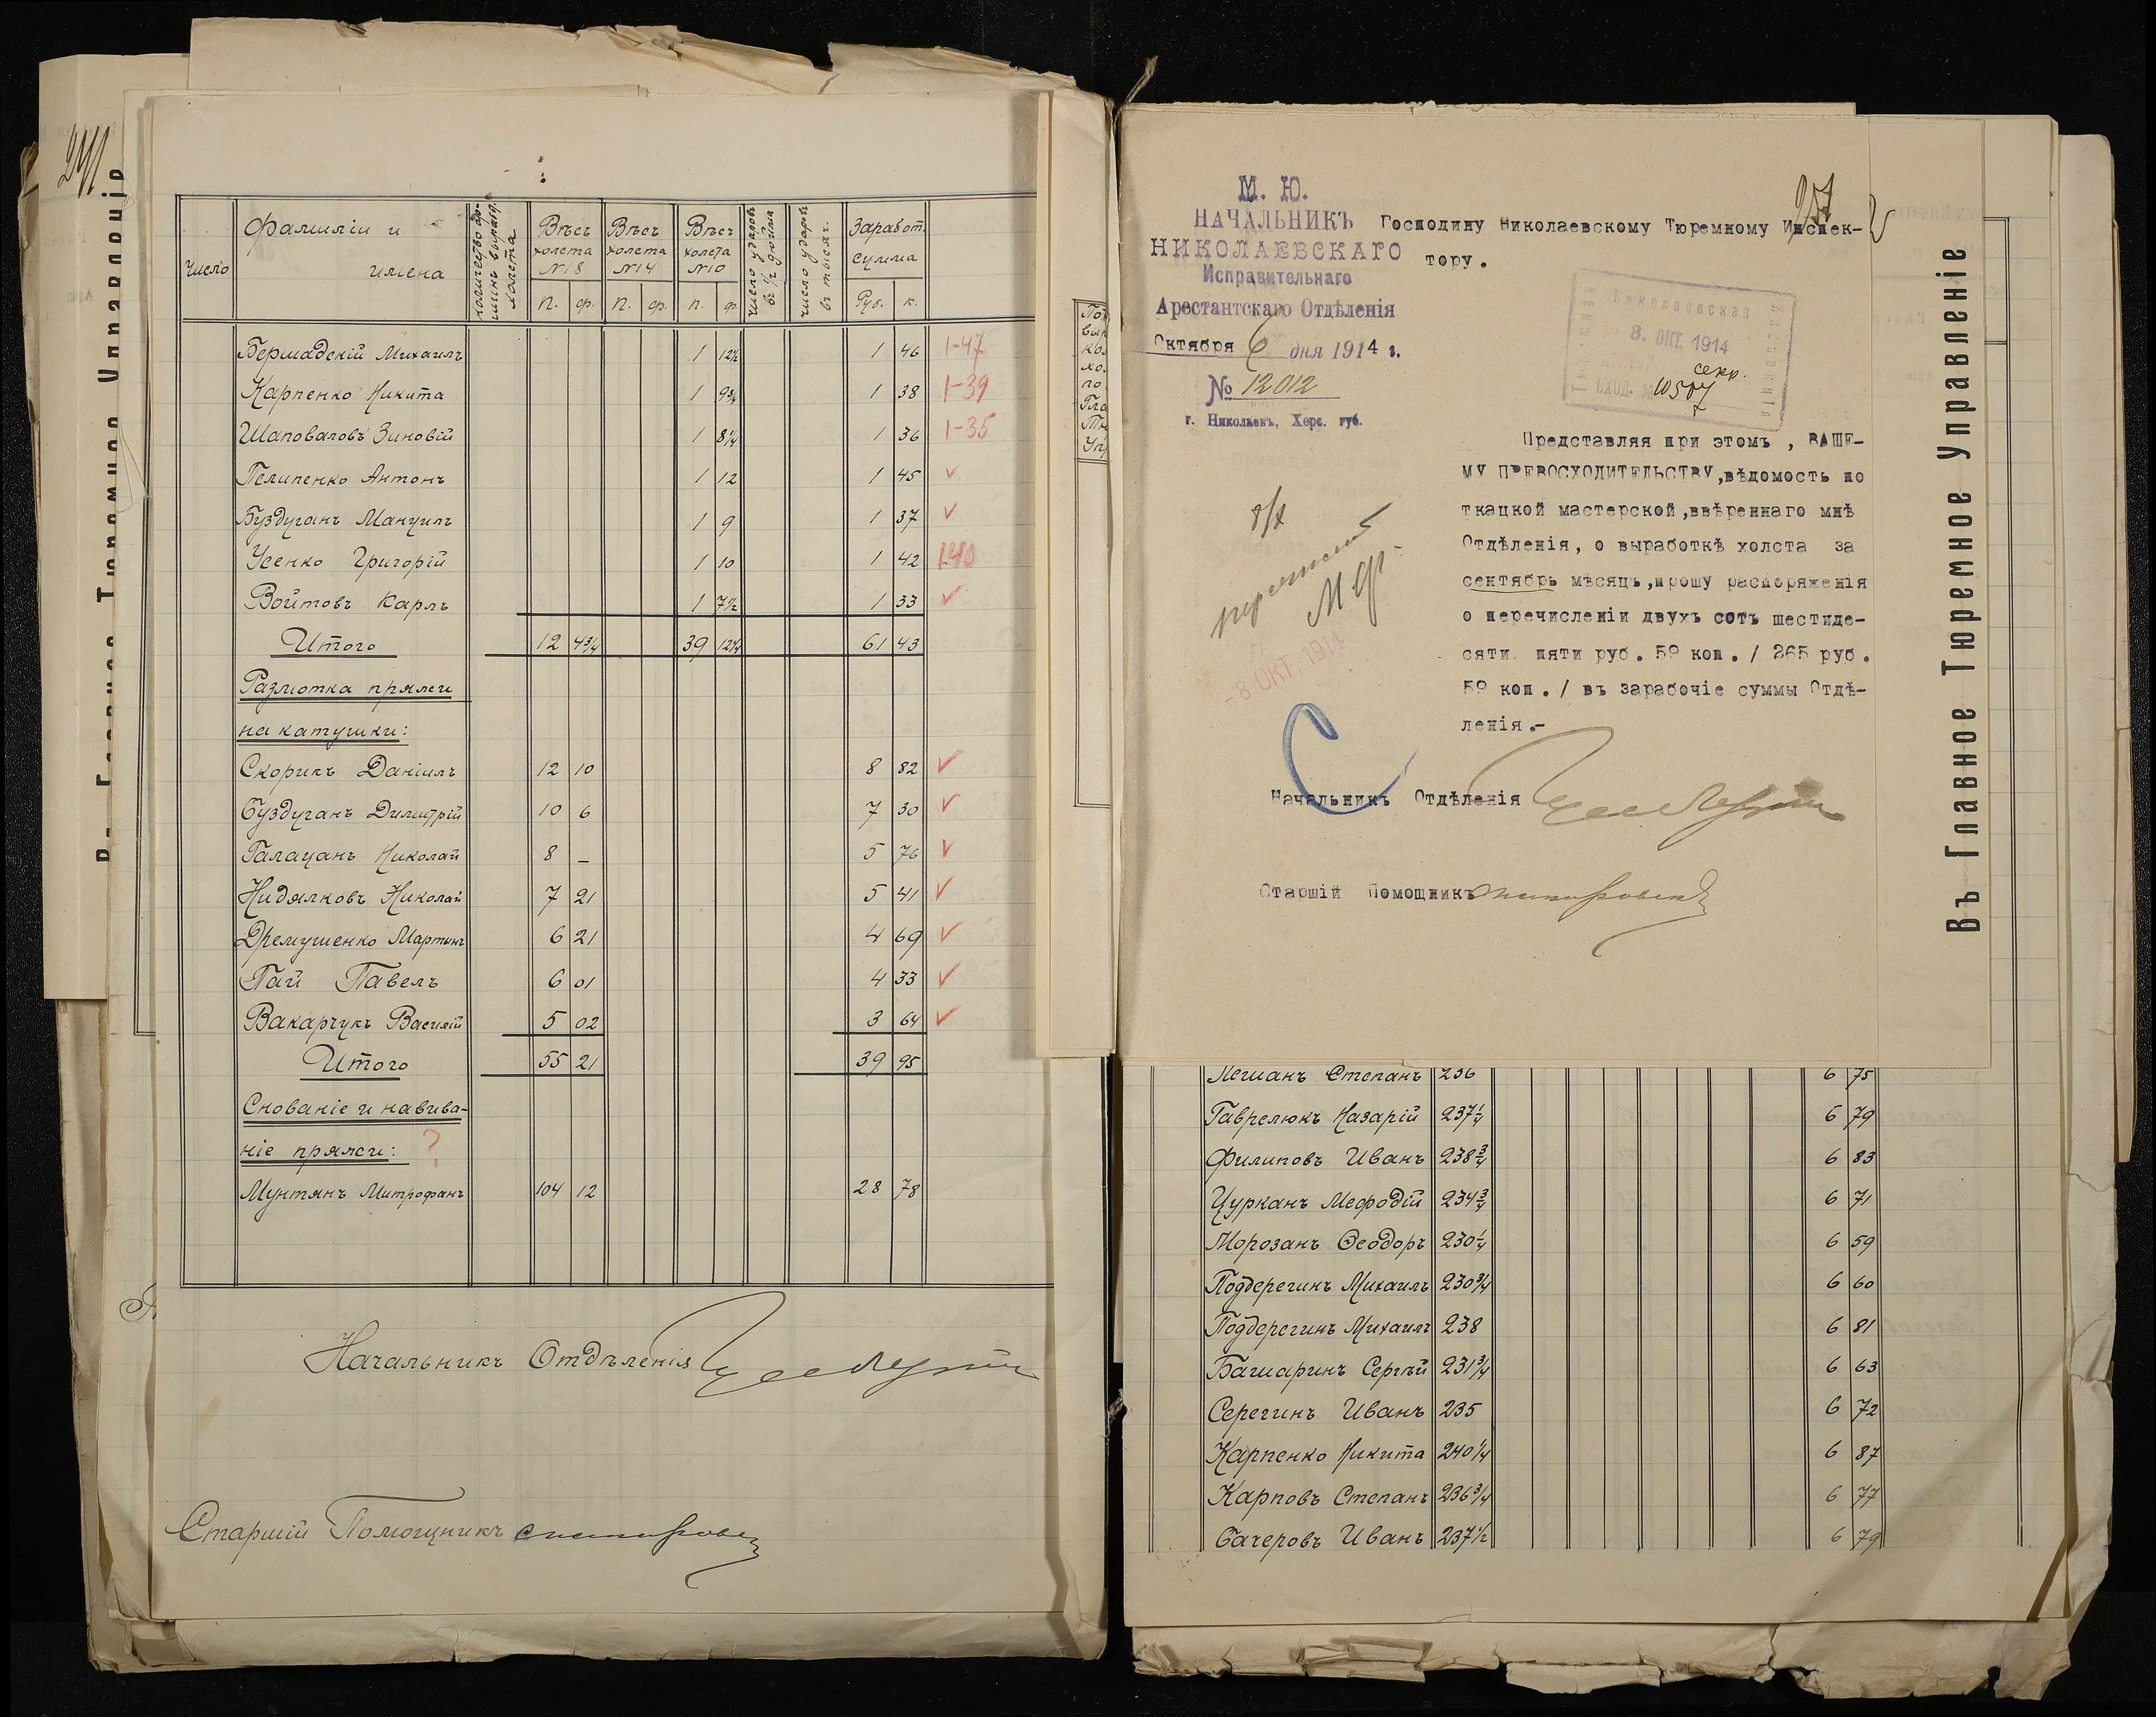 241
Число
Фамиліи и
имена
Количество ар-
шинъ выраб.
холста
Вѣсъ
холста
№18
Вѣсъ
холста
№14
Вѣсъ
холста
№10
Число ударовъ
въ 1/2 дюйма
Число ударъ
въ тысяч.
Заработ.
сумма
п. ф. п. ф. п. ф. Руб. к.
Бершадскій Михаилъ 1 12½ 1 46 1-47
Карпенко Никита 1 9¾ 1 38 1-39
Шаповаловъ Зиновій 1 8¼ 1 36 1-35
Пелипенко Антонъ 1 12 1 45 ✓
Буздуганъ Мануилъ 1 9 1 37 ✓
Усенко Григорій 1 10 1 42 1-40
Войтовъ Карлъ 1 7½ 1 33 ✓
Итого 12 4¾ 39 12¼ 61 43
Размотка пряжи
на катушки:
Скорикъ Даніилъ 12 10 8 82 ✓
Буздуганъ Димитрій 10 6 7 30 ✓
Галацанъ Николай 8 – 5 76 ✓
Нидялковъ Николай 7 21 5 41 ✓
Дремушенко Мартынъ 6 21 4 69 ✓
Гай Павелъ 6 01 4 33 ✓
Вакарчукъ Василій 5 02 3 64 ✓
Итого 55 21 39 95
Снованіе и навива-
ніе пряжи: ?
Мунтянъ Митрофанъ 104 12 28 78
Начальникъ Отдѣленія
Старшій Помощникъ
М. Ю.
НАЧАЛЬНИКЪ
НИКОЛАЕВСКАГО
Исправительнаго
Арестантскаго Отдѣленія
Октября 6 дня 1914 г.
№ 12012
г. Николаевъ, Херс. губ.
257
Господину Николаевскому Тюремному Инспек-
тору.
Николаевская
8. ОКТ. 1914
секр.
ВХОД. № 10507
Представляя при этомъ , ВАШЕ-
МУ ПРЕВОСХОДИТЕЛЬСТВУ,вѣдомость по
ткацкой мастерской,ввѣреннаго мнѣ
Отдѣленія, о выработкѣ холста за
сентябрь мѣсяцъ,прошу распоряженія
о перечисленіи двухъ сотъ шестиде-
сяти пяти руб. 59 коп. / 265 руб.
59 коп. / въ зарабочіе суммы Отдѣ-
ленія.-
8/X
- 8 ОКТ. 1914
Начальникъ Отдѣленія
Старшій Помощникъ
Въ Главное Тюремное Управленіе
Лешанъ Степанъ 236 6 75
Гаврелюкъ Назарій 237¼ 6 79
Филиповъ Иванъ 238¾ 6 83
Цурканъ Мефодій 234¾ 6 71
Морозанъ Ѳеодоръ 230¼ 6 59
Поддерегинъ Михаилъ 230¾ 6 60
Поддерегинъ Михаилъ 238 6 81
Башаринъ Сергѣй 231¾ 6 63
Серегинъ Иванъ 235 6 72
Карпенко Никита 240¼ 6 87
Карповъ Степанъ 236¾ 6 77
Бачеровъ Иванъ 237½ 6 79